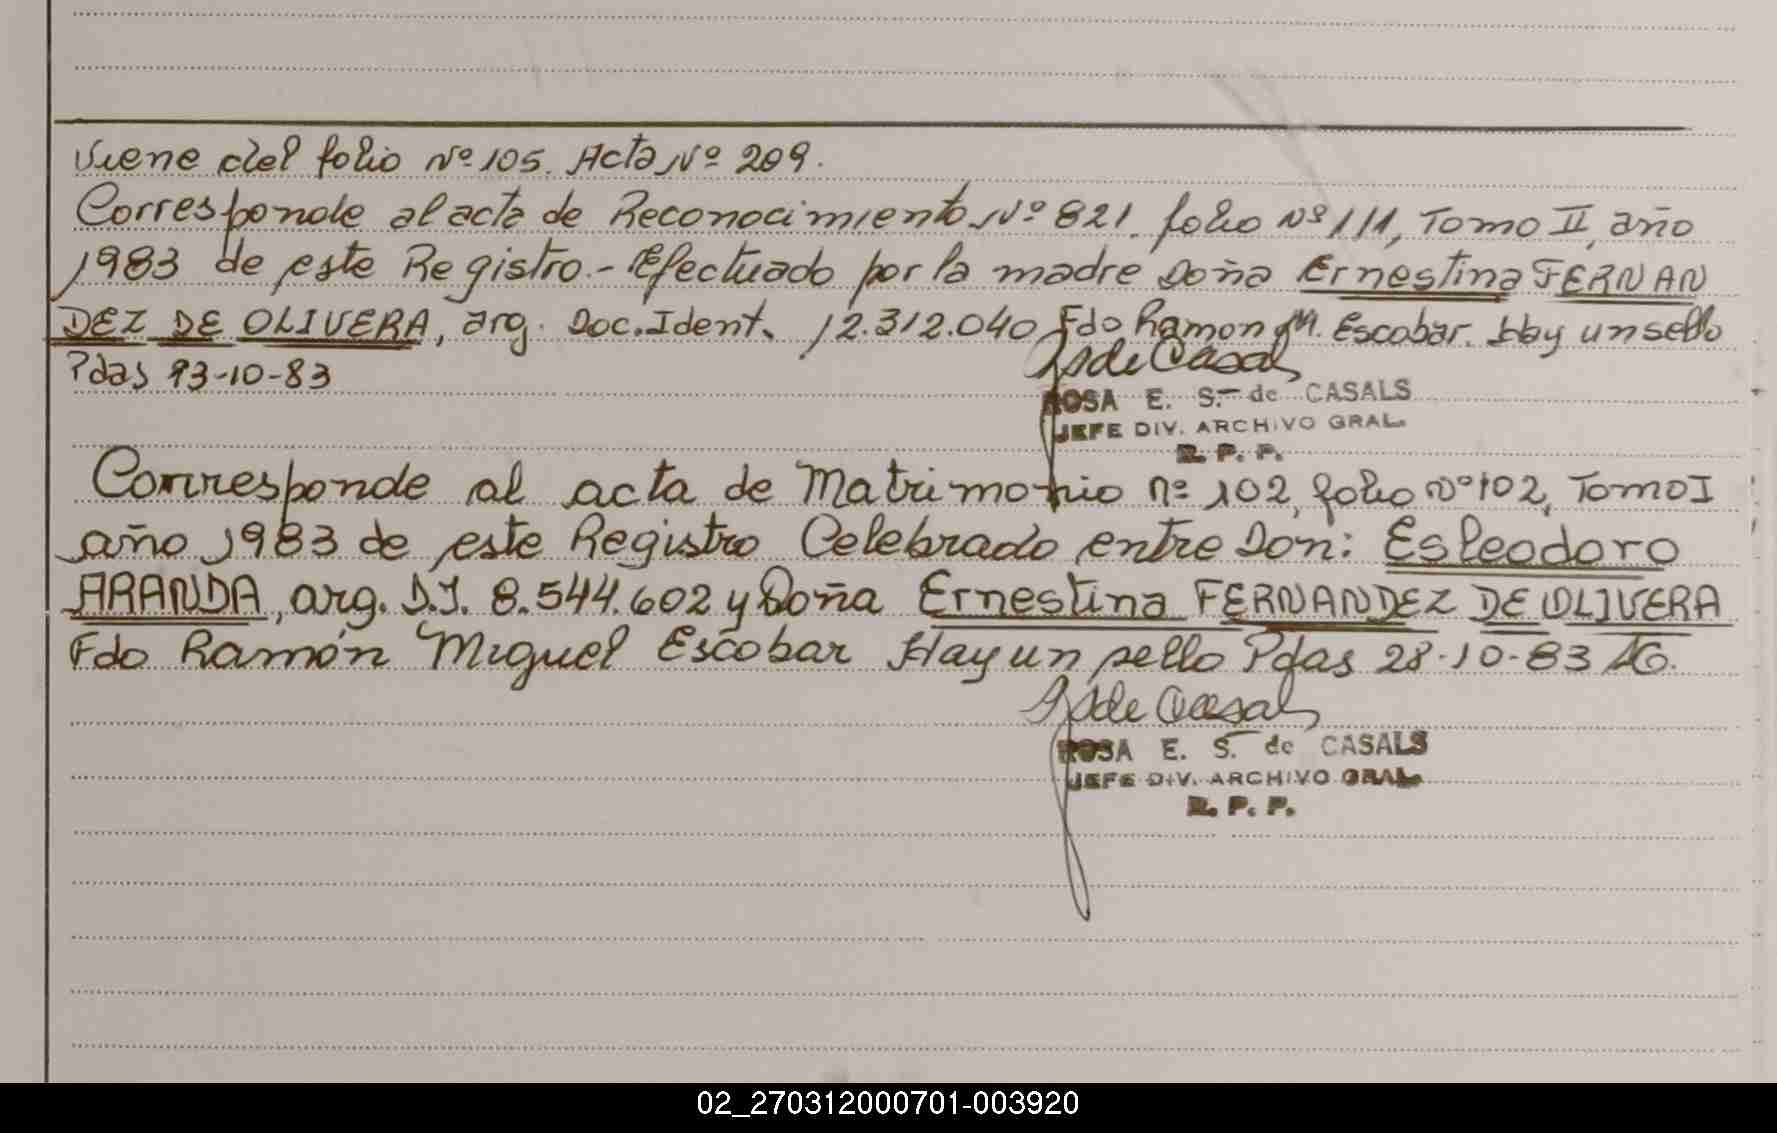 Viene del folio Nº 105. Acta Nº 209.
Corresponde al acta de Reconocimiento Nº 821. folio Nº 111, Tomo II, año
1983 de este Registro.- Efectuado por la madre Doña Ernestina FERNAN
DEZ DE OLIVERA, arg. Doc. Ident. 12.312.040 Fdo Ramon M. Escobar. Hay un sello
Pdas 13-10-83
ROSA E. S. de CASALS
JEFE DIV. ARCHIVO GRAL.
R. P. P.
Corresponde al acta de Matrimonio nº 102, folio Nº 102, Tomo I
año 1983 de este Registro Celebrado entre Don: Esleodoro
ARANDA, arg. D.I. 8.544.602 y Doña Ernestina FERNANDEZ DE OLIVERA
Fdo Ramón Miguel Escobar Hay un sello Pdas 28-10-83
ROSA E. S. de CASALS
JEFE DIV. ARCHIVO GRAL.
R. P. P.
02_270312000701-003920